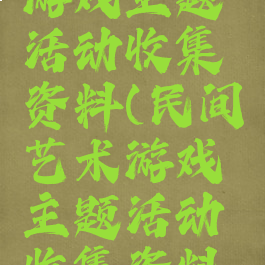 游戏主题
活动收集
资料(民间
艺术游戏
主题活动
收集资料